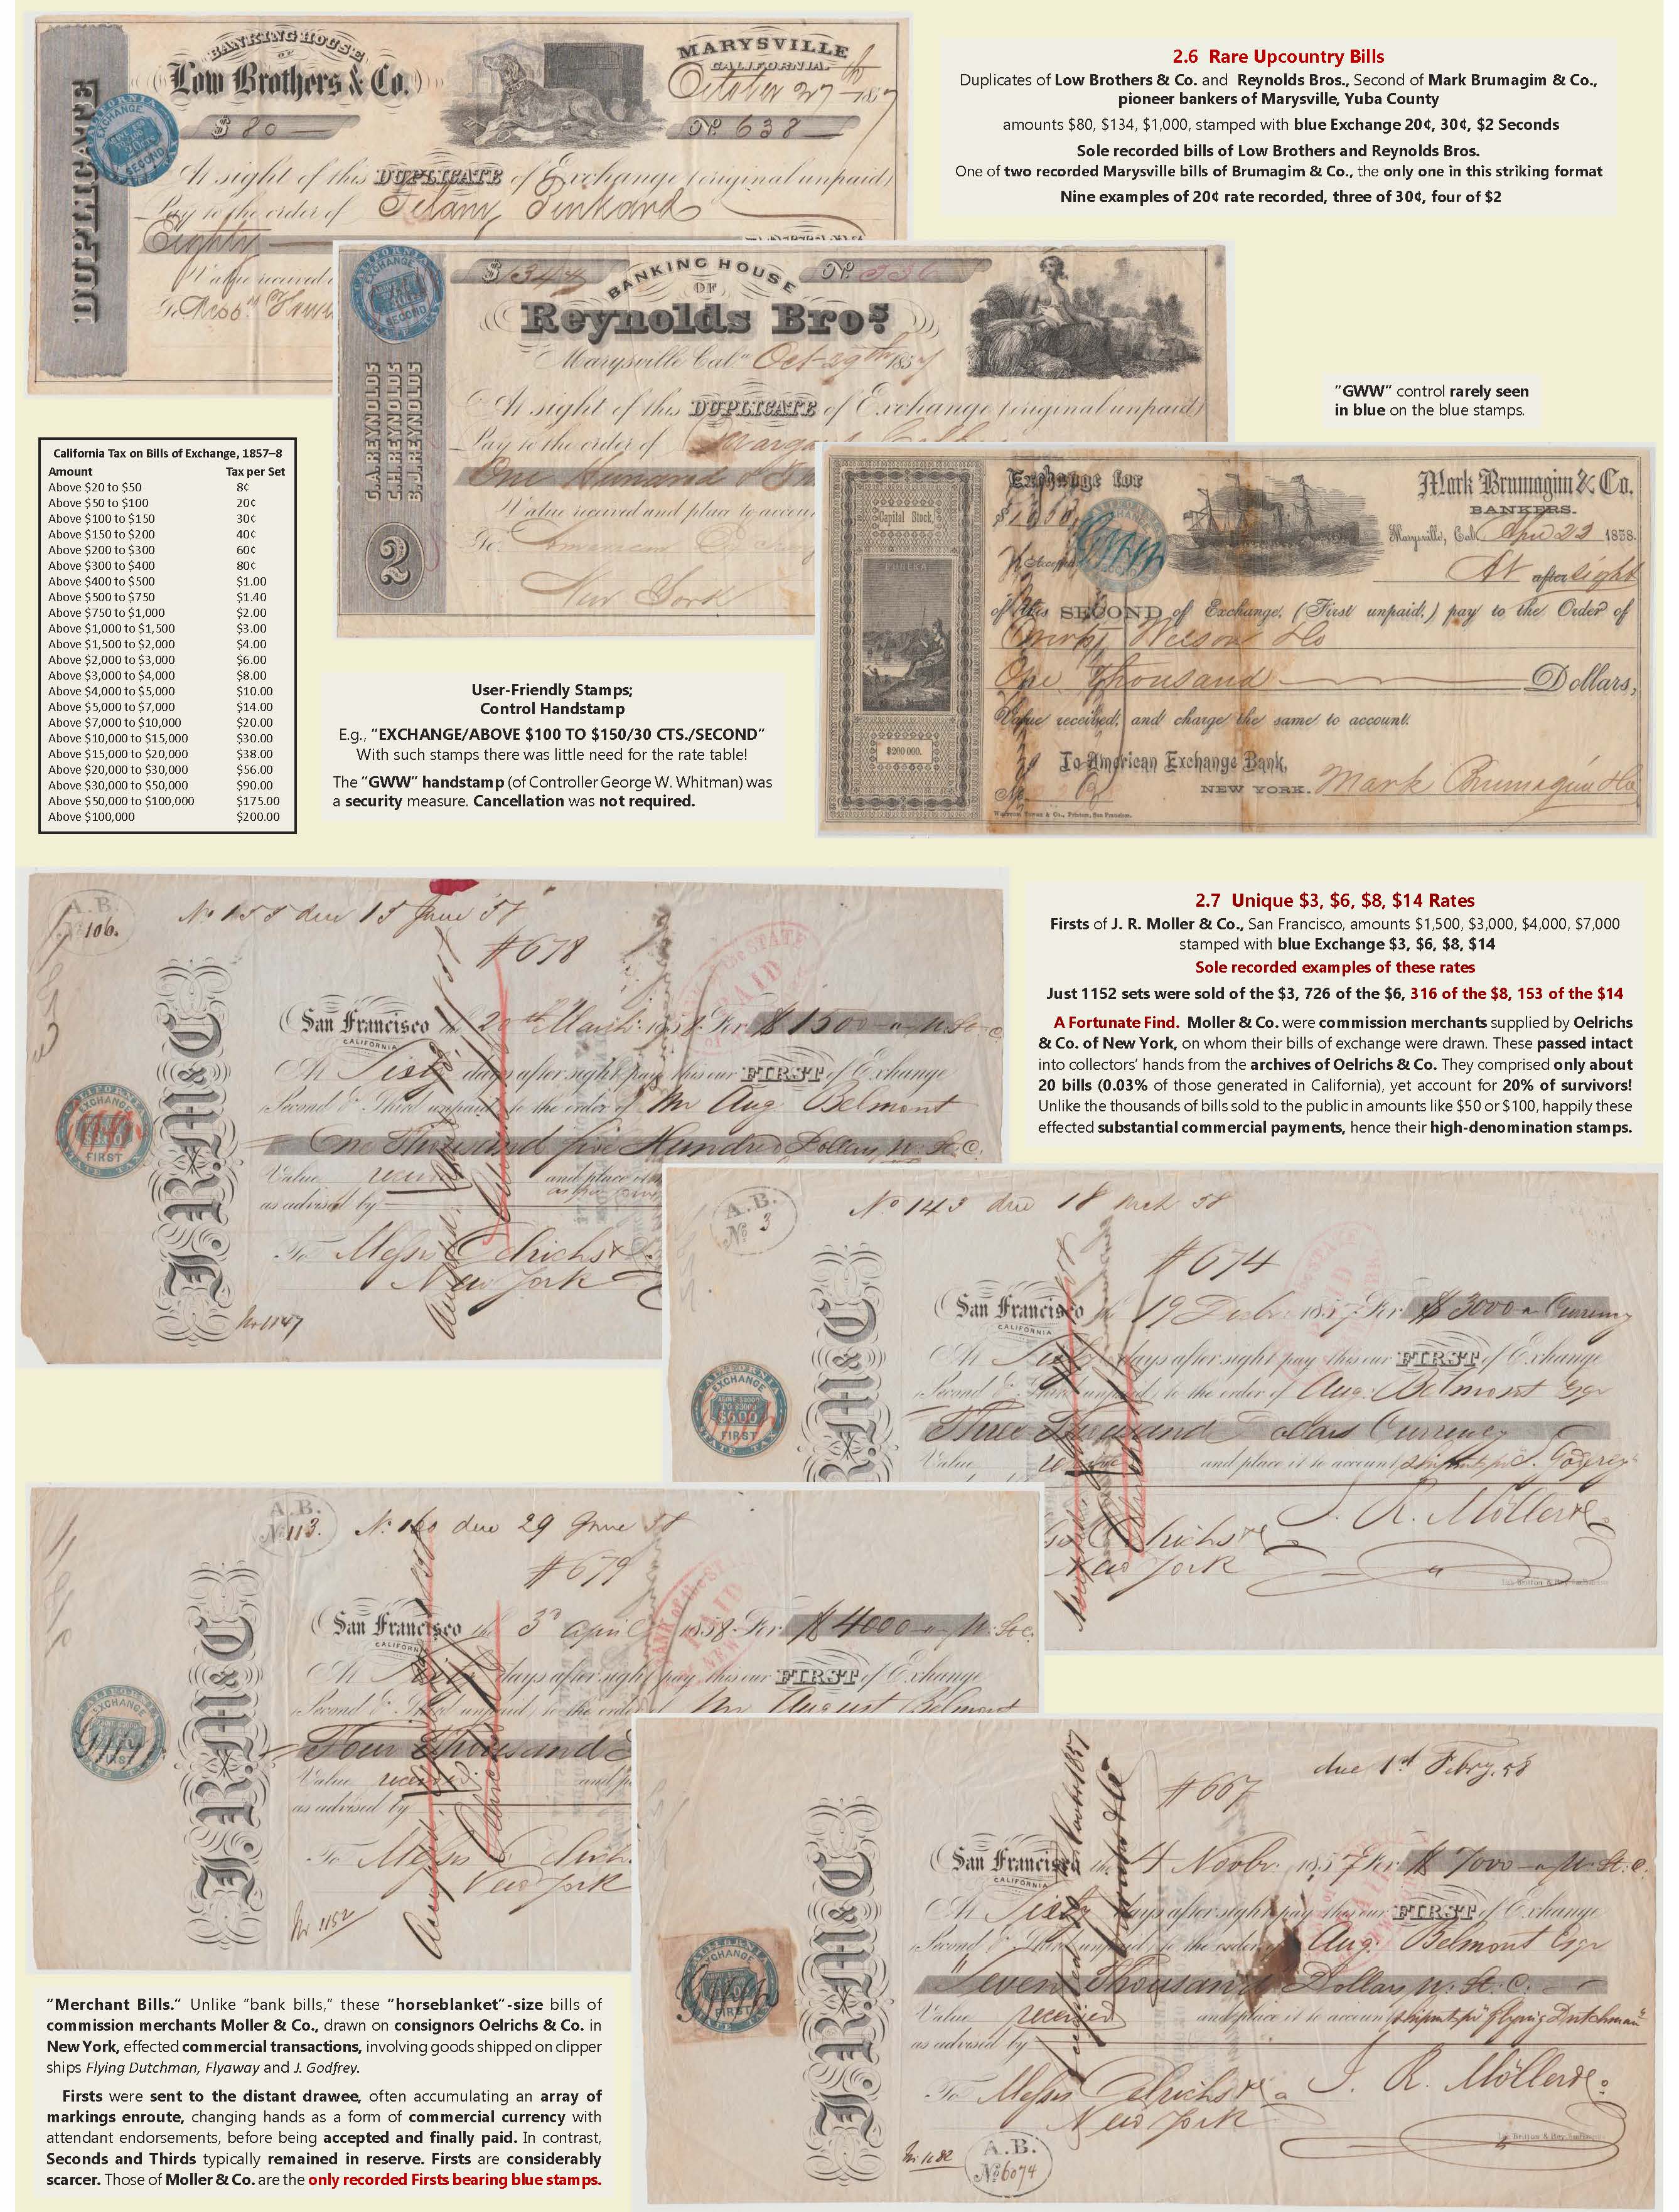 BANKING HOUSE
OF
Low Brothers & Co.
MARYSVILLE
CALIFORNIA.
October 27th 1857
DUPLICATE
CALIFORNIA
EXCHANGE
SECOND
$ 80
No. 638
At sight of this DUPLICATE of Exchange (original unpaid)
Pay to the order of
Eighty
Value received
2.6 Rare Upcountry Bills
Duplicates of Low Brothers & Co. and Reynolds Bros., Second of Mark Brumagim & Co.,
pioneer bankers of Marysville, Yuba County
amounts $80, $134, $1,000, stamped with blue Exchange 20¢, 30¢, $2 Seconds
Sole recorded bills of Low Brothers and Reynolds Bros.
One of two recorded Marysville bills of Brumagim & Co., the only one in this striking format
Nine examples of 20¢ rate recorded, three of 30¢, four of $2
CALIFORNIA
EXCHANGE
SECOND
BANKING HOUSE
OF
Reynolds Bros.
No. 336
Marysville Cal. Oct 29th 1857
G.A. REYNOLDS
C.H. REYNOLDS
B.J. REYNOLDS
2
At sight of this DUPLICATE of Exchange (original unpaid)
Pay to the order of
One Hundred &
Value received and place to account
To
New York
"GWW" control rarely seen
in blue on the blue stamps.
California Tax on Bills of Exchange, 1857–8
Amount Tax per Set
Above $20 to $50 8¢
Above $50 to $100 20¢
Above $100 to $150 30¢
Above $150 to $200 40¢
Above $200 to $300 60¢
Above $300 to $400 80¢
Above $400 to $500 $1.00
Above $500 to $750 $1.40
Above $750 to $1,000 $2.00
Above $1,000 to $1,500 $3.00
Above $1,500 to $2,000 $4.00
Above $2,000 to $3,000 $6.00
Above $3,000 to $4,000 $8.00
Above $4,000 to $5,000 $10.00
Above $5,000 to $7,000 $14.00
Above $7,000 to $10,000 $20.00
Above $10,000 to $15,000 $30.00
Above $15,000 to $20,000 $38.00
Above $20,000 to $30,000 $56.00
Above $30,000 to $50,000 $90.00
Above $50,000 to $100,000 $175.00
Above $100,000 $200.00
User-Friendly Stamps;
Control Handstamp
E.g., "EXCHANGE/ABOVE $100 TO $150/30 CTS./SECOND"
With such stamps there was little need for the rate table!
The "GWW" handstamp (of Controller George W. Whitman) was
a security measure. Cancellation was not required.
Exchange for
Mark Brumagim & Co.
BANKERS.
Marysville, Cal. Apr 22 1858.
Capital Stock,
EUREKA
$200 000.
At after sight
of this SECOND of Exchange, (First unpaid.) pay to the Order of
One Thousand Dollars,
Value received, and charge the same to account.
To American Exchange Bank,
NEW YORK.
Mark Brumagim & Co
2.7 Unique $3, $6, $8, $14 Rates
Firsts of J. R. Moller & Co., San Francisco, amounts $1,500, $3,000, $4,000, $7,000
stamped with blue Exchange $3, $6, $8, $14
Sole recorded examples of these rates
Just 1152 sets were sold of the $3, 726 of the $6, 316 of the $8, 153 of the $14
A Fortunate Find. Moller & Co. were commission merchants supplied by Oelrichs
& Co. of New York, on whom their bills of exchange were drawn. These passed intact
into collectors' hands from the archives of Oelrichs & Co. They comprised only about
20 bills (0.03% of those generated in California), yet account for 20% of survivors!
Unlike the thousands of bills sold to the public in amounts like $50 or $100, happily these
effected substantial commercial payments, hence their high-denomination stamps.
A.B.
No 106.
#678
J.R.M&C
San Francisco the 20th March 1858 For $ 1500
CALIFORNIA
At Sixty days after sight pay this our FIRST of Exchange
Second & Third unpaid, to the order of Mr Aug. Belmont
One Thousand five Hundred Dollars
Value received and place it
as advised by
To Messrs Oelrichs &
New York
No 1147
CALIFORNIA
EXCHANGE
FIRST
STATE TAX
A.B.
No 3
No 143 due 18 Mch 58
#674
San Francisco 19 Decbr 1857 For $ 3000 Currency
CALIFORNIA
At Sixty days after sight pay this our FIRST of Exchange
Second & Third unpaid, to the order of Aug. Belmont Esqr
Three Thousand Dollars Currency
Value received and place it to account
J. R. Möller & Co
New York
CALIFORNIA
EXCHANGE
$6.00
FIRST
STATE TAX
A.B.
No 113.
No 160 due 29 June 58
#679
San Francisco the 3d April 1858 For $ 4000
CALIFORNIA
At Sixty days after sight pay this our FIRST of Exchange
Second & Third unpaid, to the order of Mr August Belmont
Four Thousand
Value received
as advised by
To Messrs
New York
No 1152
due 1st Febry. 58
#667
San Francisco the 4 Novbr 1857 For $ 7000
CALIFORNIA
At Sixty days after sight pay this our FIRST of Exchange
Second & Third unpaid to the order of Aug. Belmont Esqr
Seven Thousand Dollars
Value received and place it to account shipmt pr Flying Dutchman
as advised by
To Messrs Oelrichs & Co
New York
J. R. Möller & Co
A.B.
No 6074
"Merchant Bills." Unlike "bank bills," these "horseblanket"-size bills of
commission merchants Moller & Co., drawn on consignors Oelrichs & Co. in
New York, effected commercial transactions, involving goods shipped on clipper
ships Flying Dutchman, Flyaway and J. Godfrey.
Firsts were sent to the distant drawee, often accumulating an array of
markings enroute, changing hands as a form of commercial currency with
attendant endorsements, before being accepted and finally paid. In contrast,
Seconds and Thirds typically remained in reserve. Firsts are considerably
scarcer. Those of Moller & Co. are the only recorded Firsts bearing blue stamps.